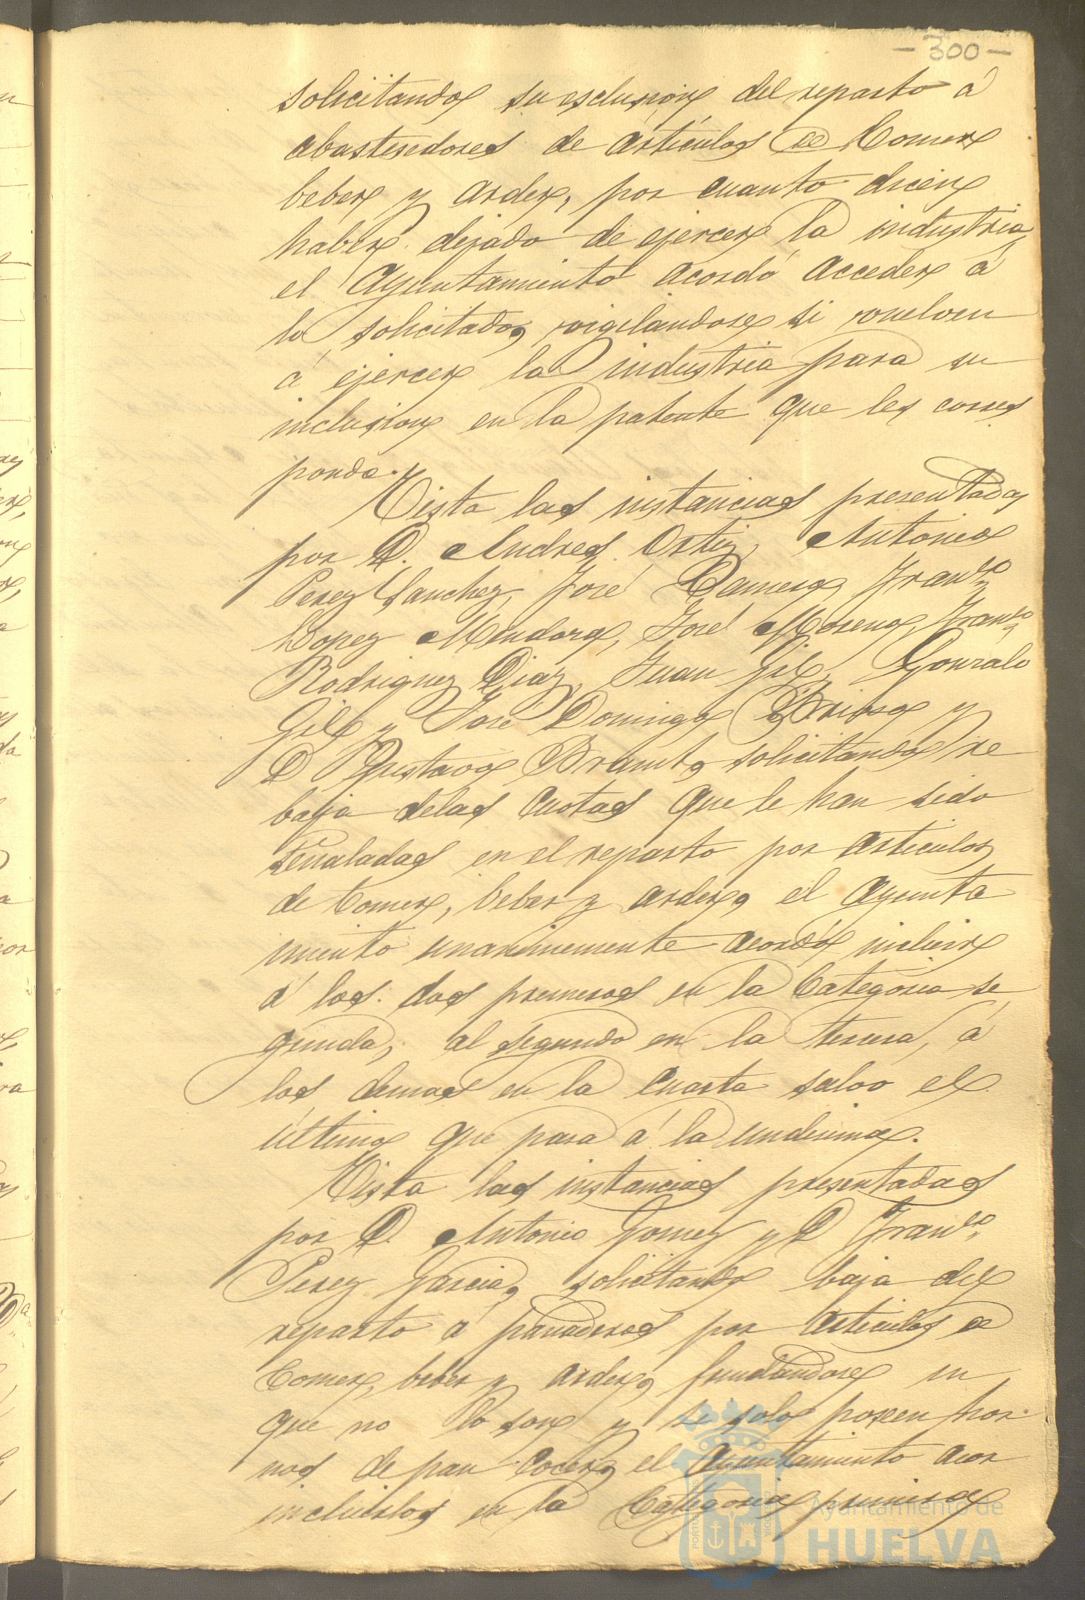 - 300 -
solicitando su esclusion del reparto á
abastecedores de articulos de Comer
beber y arder, por cuanto dicen
haber dejado de ejercer la industria,
el Ayuntamiento acordó acceder á
lo solicitado, vigilandose si vuelven
á ejercer la industria para su
inclusion en la patente que les corres
ponda.
Vista las instancias presentadas
por D. Andres Ortiz, Antonio
Perez Sanchez, José Romero, Franco
Lopez Mendoza, José Moreno, Franco
Rodriguez Diaz, Juan Gil, Gonzalo
Gil y José Domingo y
D Gustavo solicitando re
baja delas cuotas que le han sido
señaladas en el reparto por articulos
de Comer, beber y arder, el Ayunta
miento unanimemente acordó incluir
á los dos primeros en la Categoria se
gunda, al segundo en la tercera, á
los demas en la cuarta salvo el
último que pasa á la undecima.
Vista las instancias presentadas
por D. Antonio Gomez y D Franco
Perez Garcia, solicitando baja del
reparto a panaderos por articulos de
Comer, beber y arder, fundandose en
que no lo son y si solo poseen hor
nos de pan cocer, el Ayuntamiento acor
incluirlos en la Categoria primera
Ayuntamiento de
HUELVA